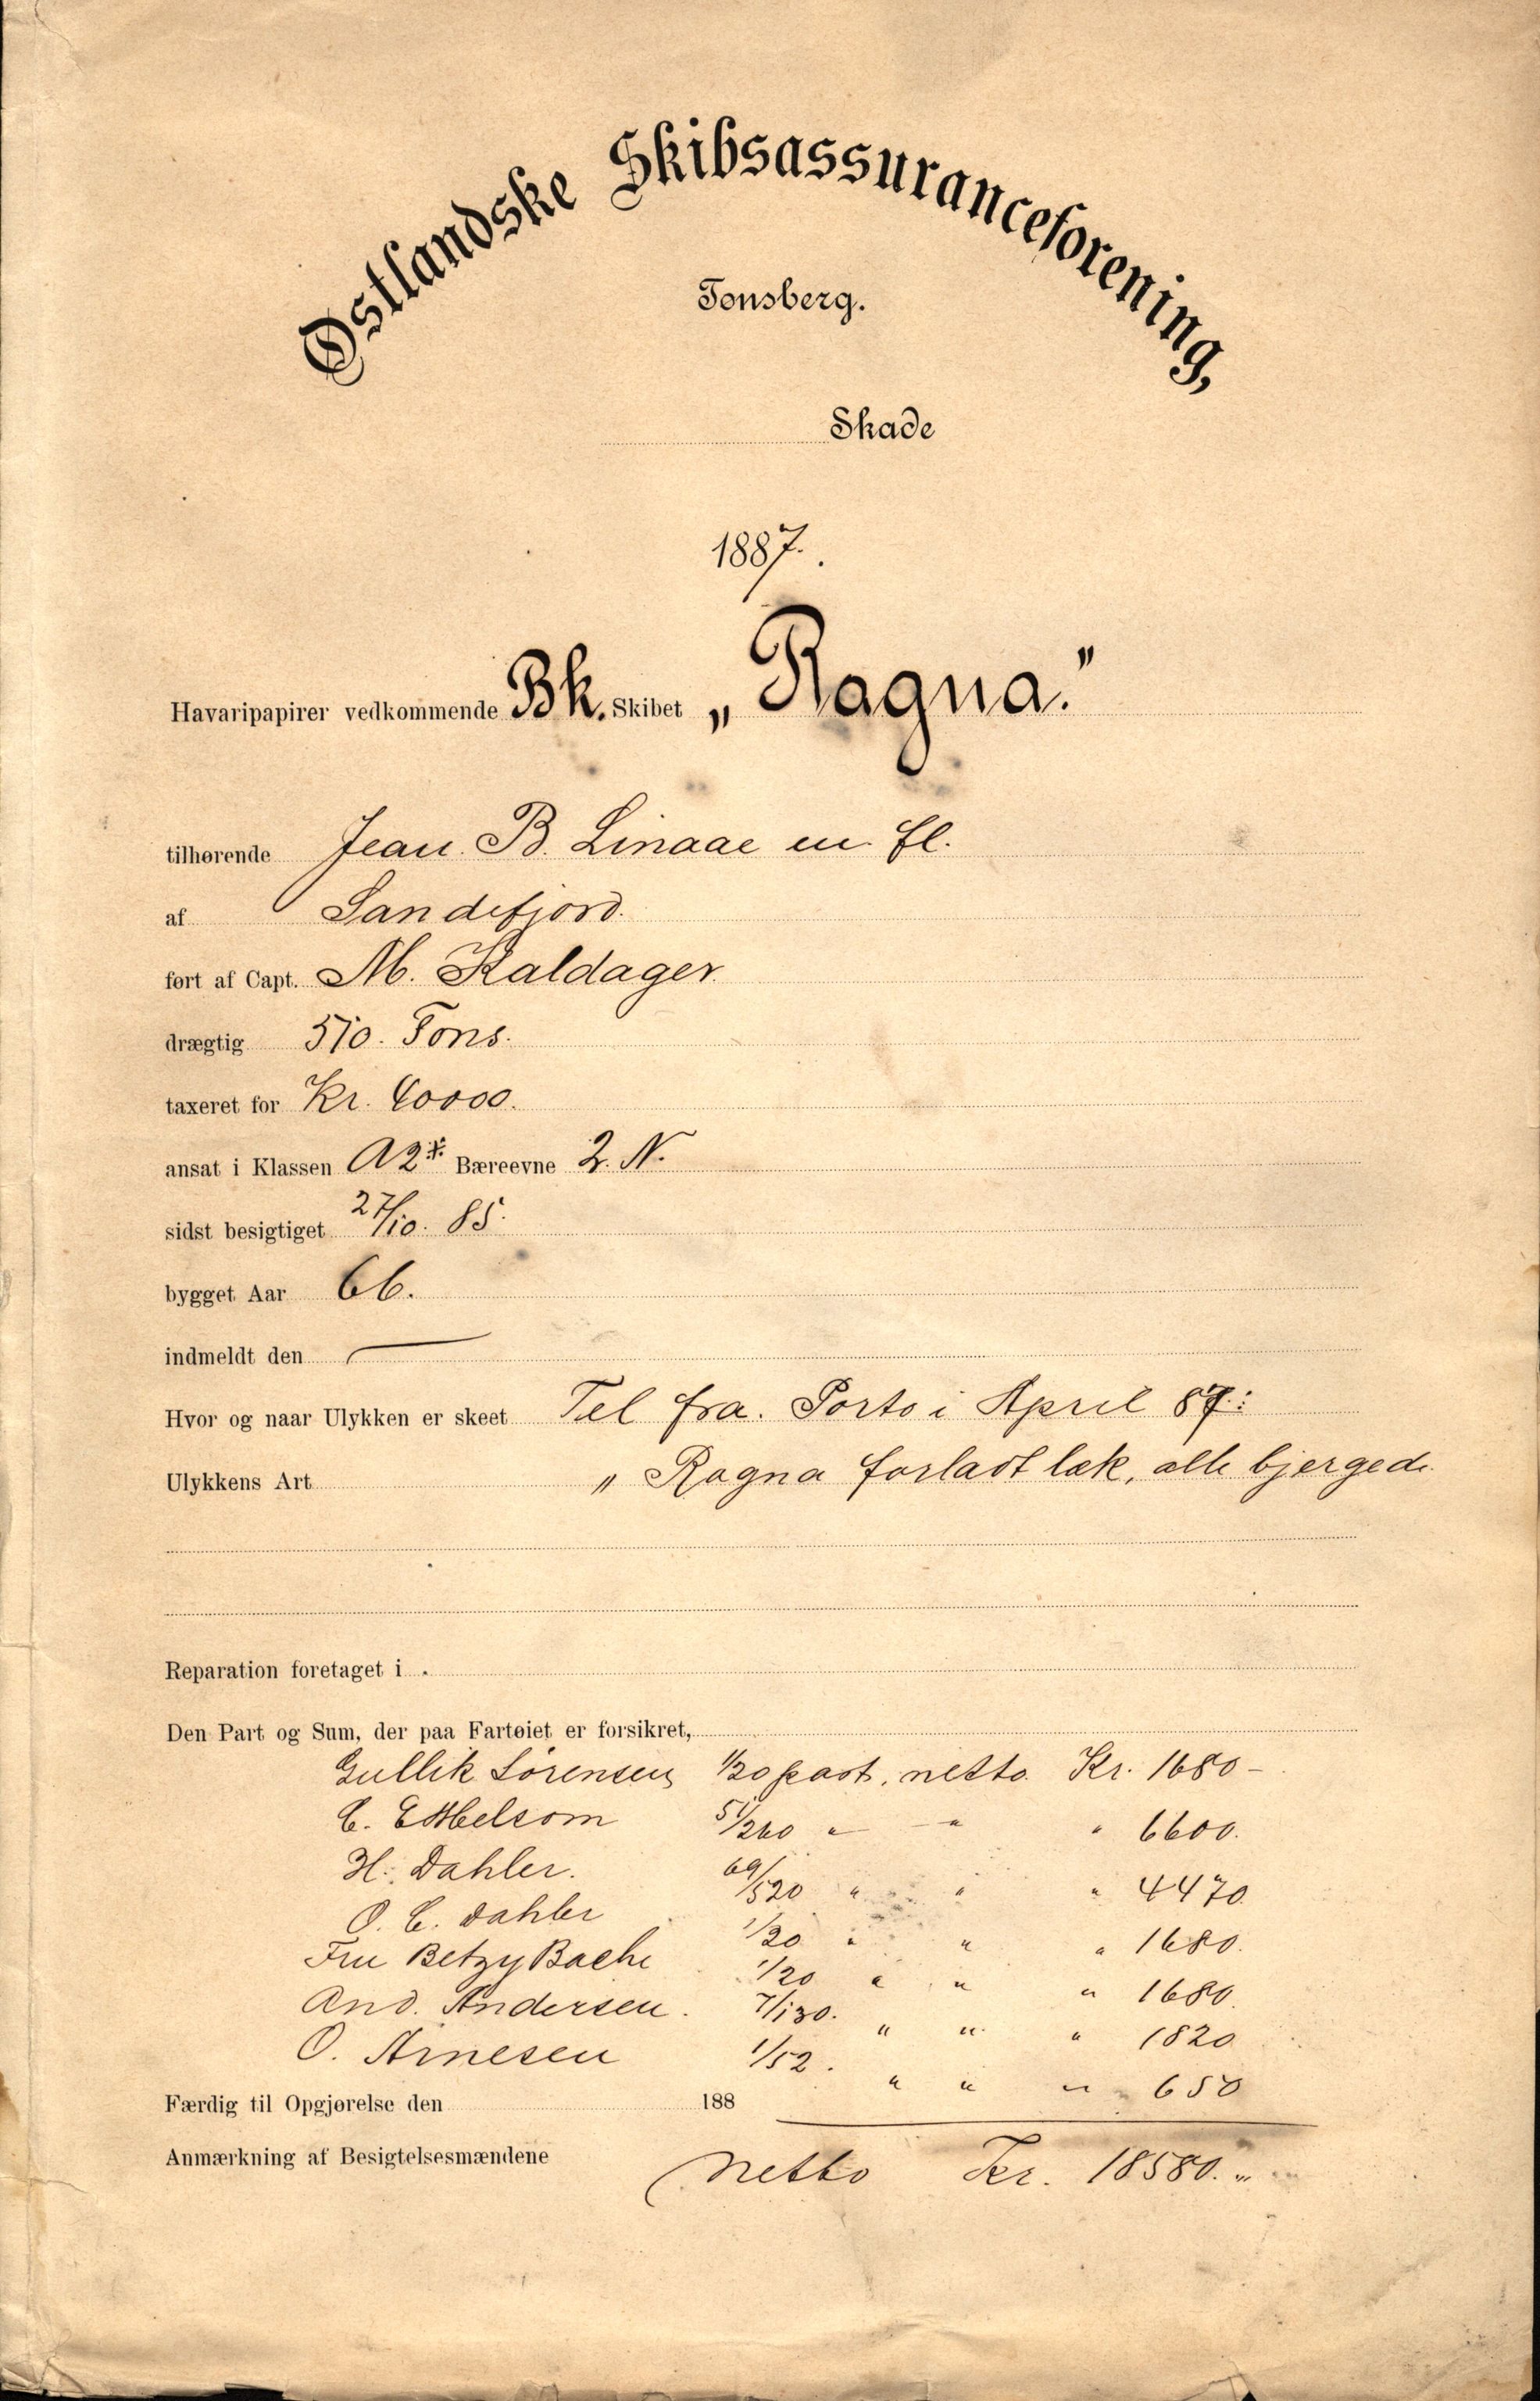 Østlandske Skibsassuranceforening,
Tønsberg.
Skade
1887.
Havaripapirer vedkommende Bk. Skibet „Ragna."
tilhørende Jean B. Linaae m. fl.
af Sandefjord.
ført af Capt. M. Kaldager.
drægtig 510. Tons.
taxeret for Kr. 40000.
ansat i Klassen A2 Bæreevne 2. N.
sidst besigtiget 27/10. 85.
bygget Aar 66.
indmeldt den —
Hvor og naar Ulykken er skeet Tel fra. Porto i April 87:
Ulykkens Art „ Ragna forladt læk, alle bjergede.
Reparation foretaget i
Den Part og Sum, der paa Fartøiet er forsikret,
Gullik Sørensen 1/20 part, netto Kr. 1680 –
C. E Melsom 51/260 " " " 6600.
H. Dahler. 69/520 " " " 4470
O. C. Dahler 1/20 " " " 1680.
Fru Betzy Bache 1/20 " " " 1680.
And. Andersen. 7/130. " " " 1820
O. Arnesen 1/52. " " " 650
Færdig til Opgjørelse den 188
Anmærkning af Besigtelsesmændene
Netto Kr. 18580. "